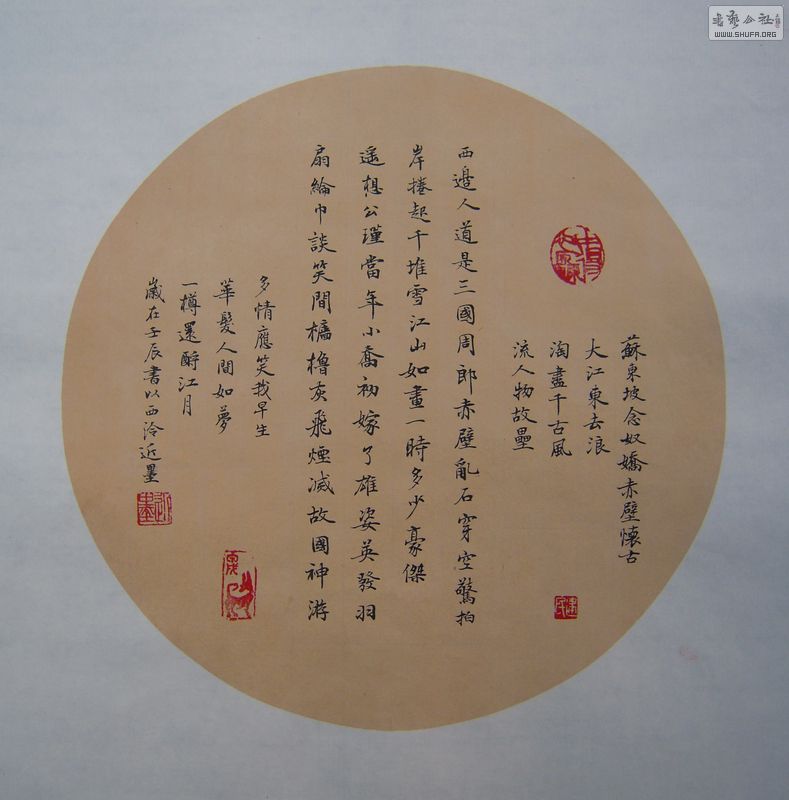 蘇東坡念奴嬌赤壁懷古
大江東去浪
淘盡千古風
流人物故壘
西邊人道是三國周郎赤壁亂石穿空驚拍
岸捲起千堆雪江山如畫一時多少豪傑
遥想公瑾當年小喬初嫁了雄姿英發羽
扇綸巾談笑間檣櫓灰飛煙滅故國神游
多情應笑我早生
華髮人間如夢
一樽還酹江月
歲在壬辰書以西泠近墨
書藝公社
WWW.SHUFA.ORG